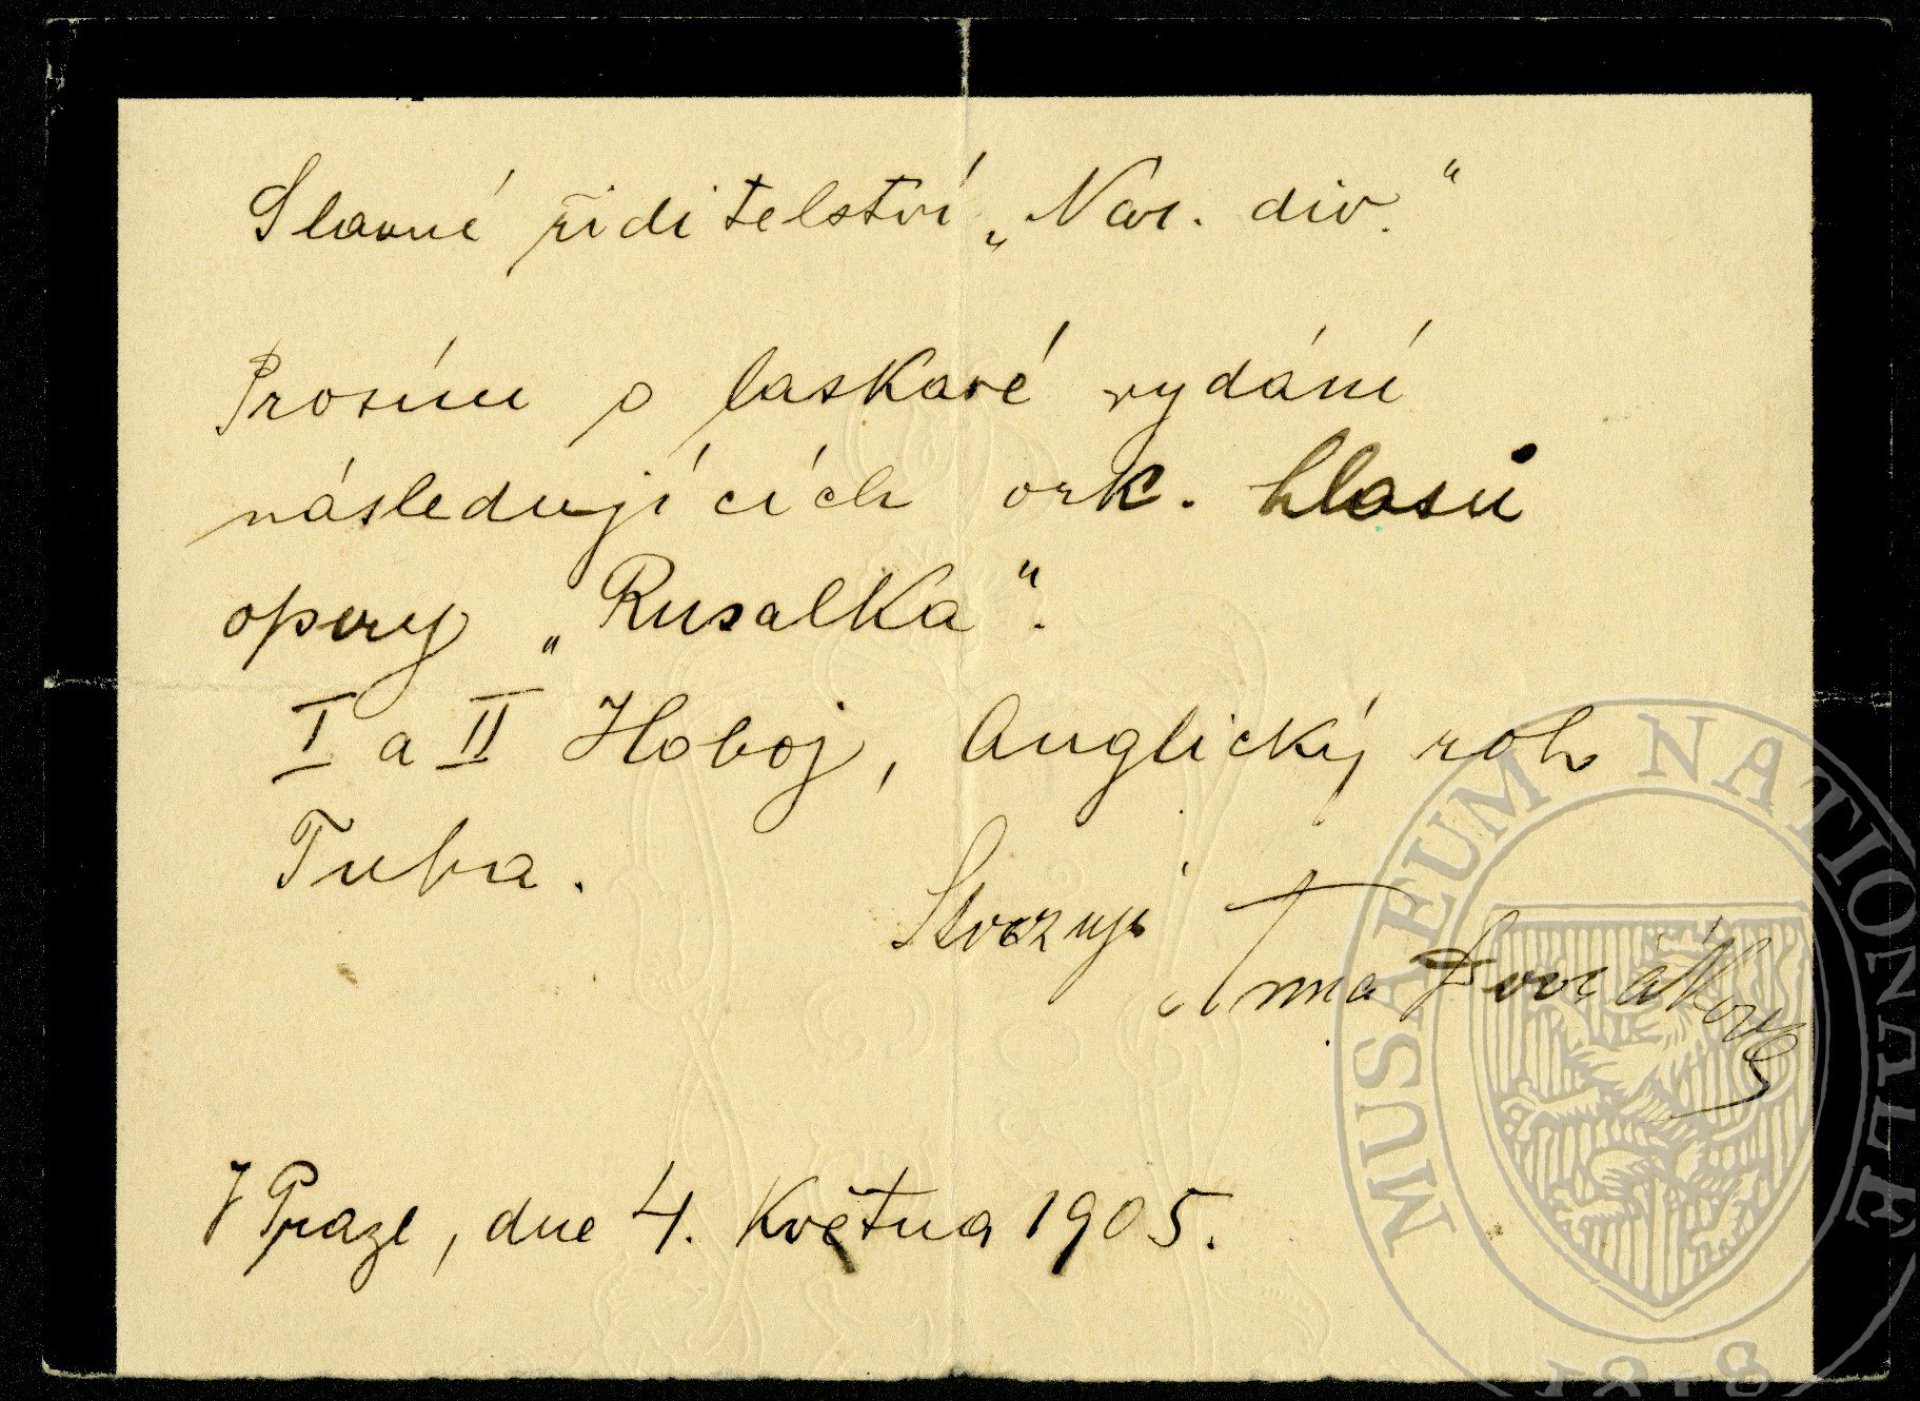 Slavné řiditelství „Nar. div.“
Prosím o laskavé vydání
následujících ork. hlasů
opery „Rusalka“.
I a II Hoboj, Anglický roh
Tuba.
Anna Dvořáková
V Praze, dne 4. Května 1905.
MUSAEUM NATIONALE
1818